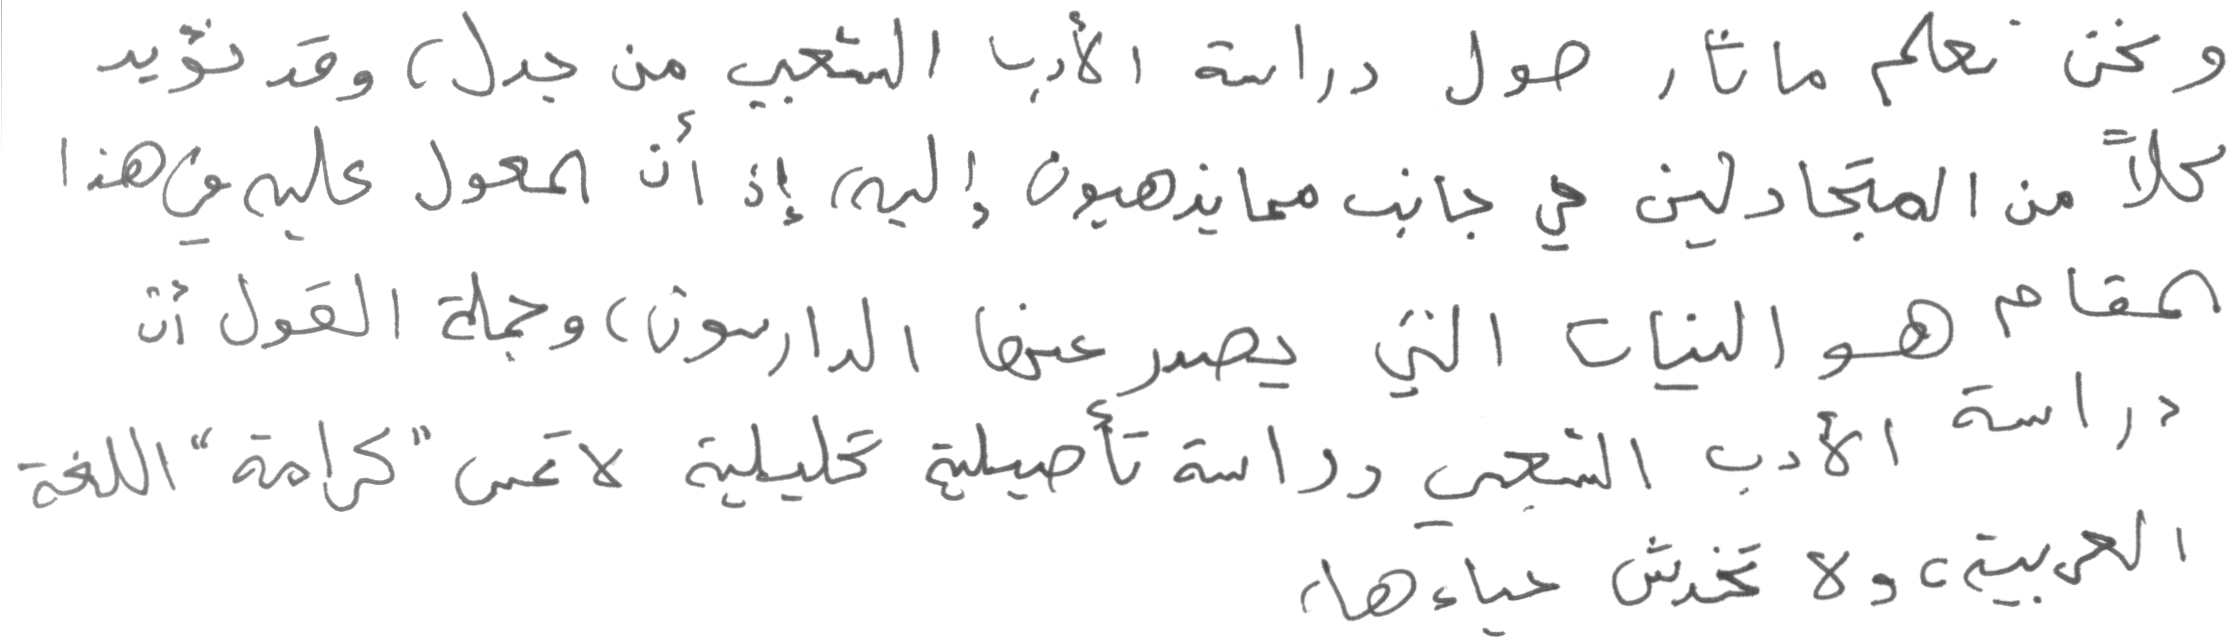 ونحن نعلم ما ثار حول دراسة الأدب الشعبي من جدل، وقد نؤيد
كلاً من المتجادلين في جانب مما يذهبون إليه، إذ أن المعول عليه في هذا
المقام هو النيات التي يصدر عنها الدارسون، وجملة القول أن
دراسة الأدب الشعبي دراسة تأصيلية تحليلية لا تمس "كرامة" اللغة
العربية، ولا تخدش حياءها،